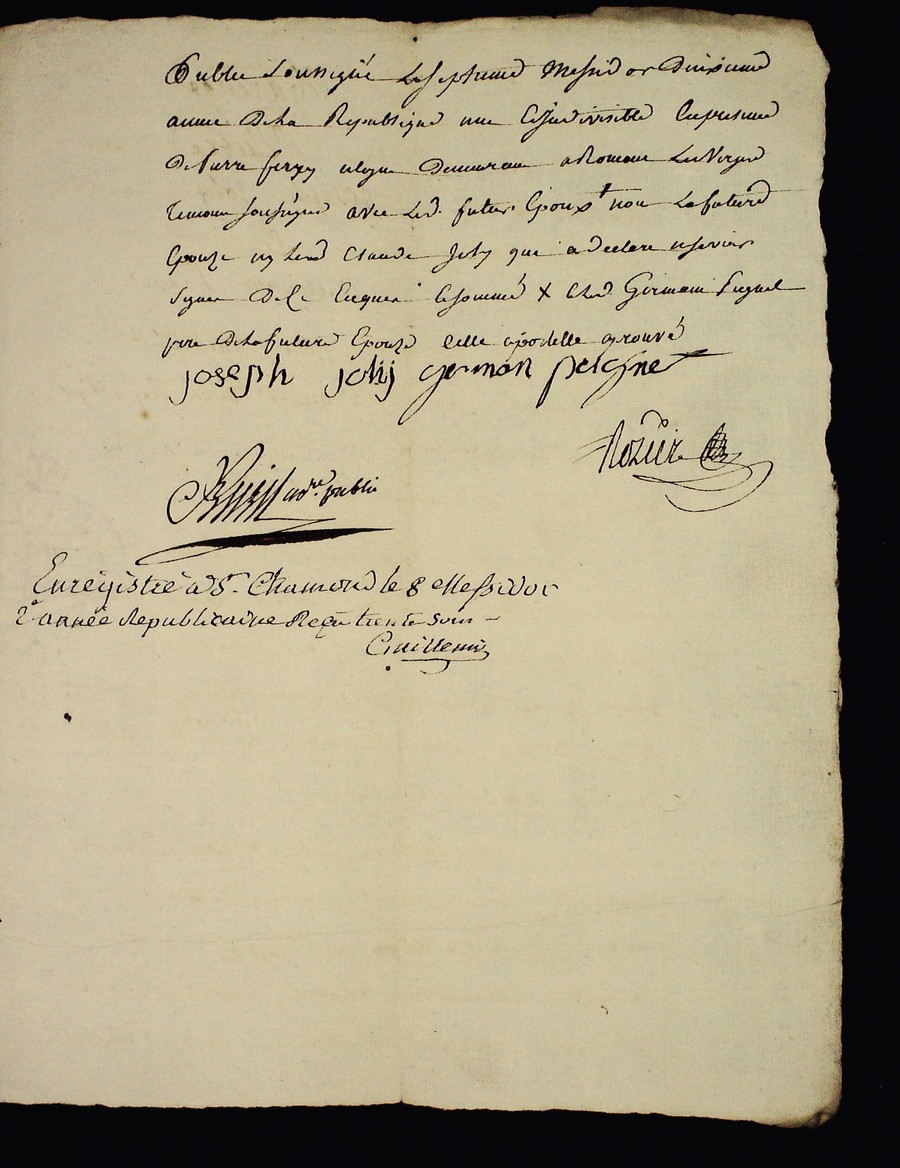 Public Soussigné Le septieme Messidor Deuxieme
année De la Republique une & indivisible En presence
De Pierre ferry citoyen Demeurant a Romain Les Vergers
temoin soussigné avec Led. futur Epoux † non La future
Epouze ny Led Claude Joly qui a declaré ne scavoir
signer De Ce Enquis & sommé X & led. Germain
pere De la future Epouze Cette apostille aprouvé
joseph jolij german
Rozier
public
Enregistré a St. Chamond le 8 Messidor
2e année Republicaine Reçu trente sous
Guillemin